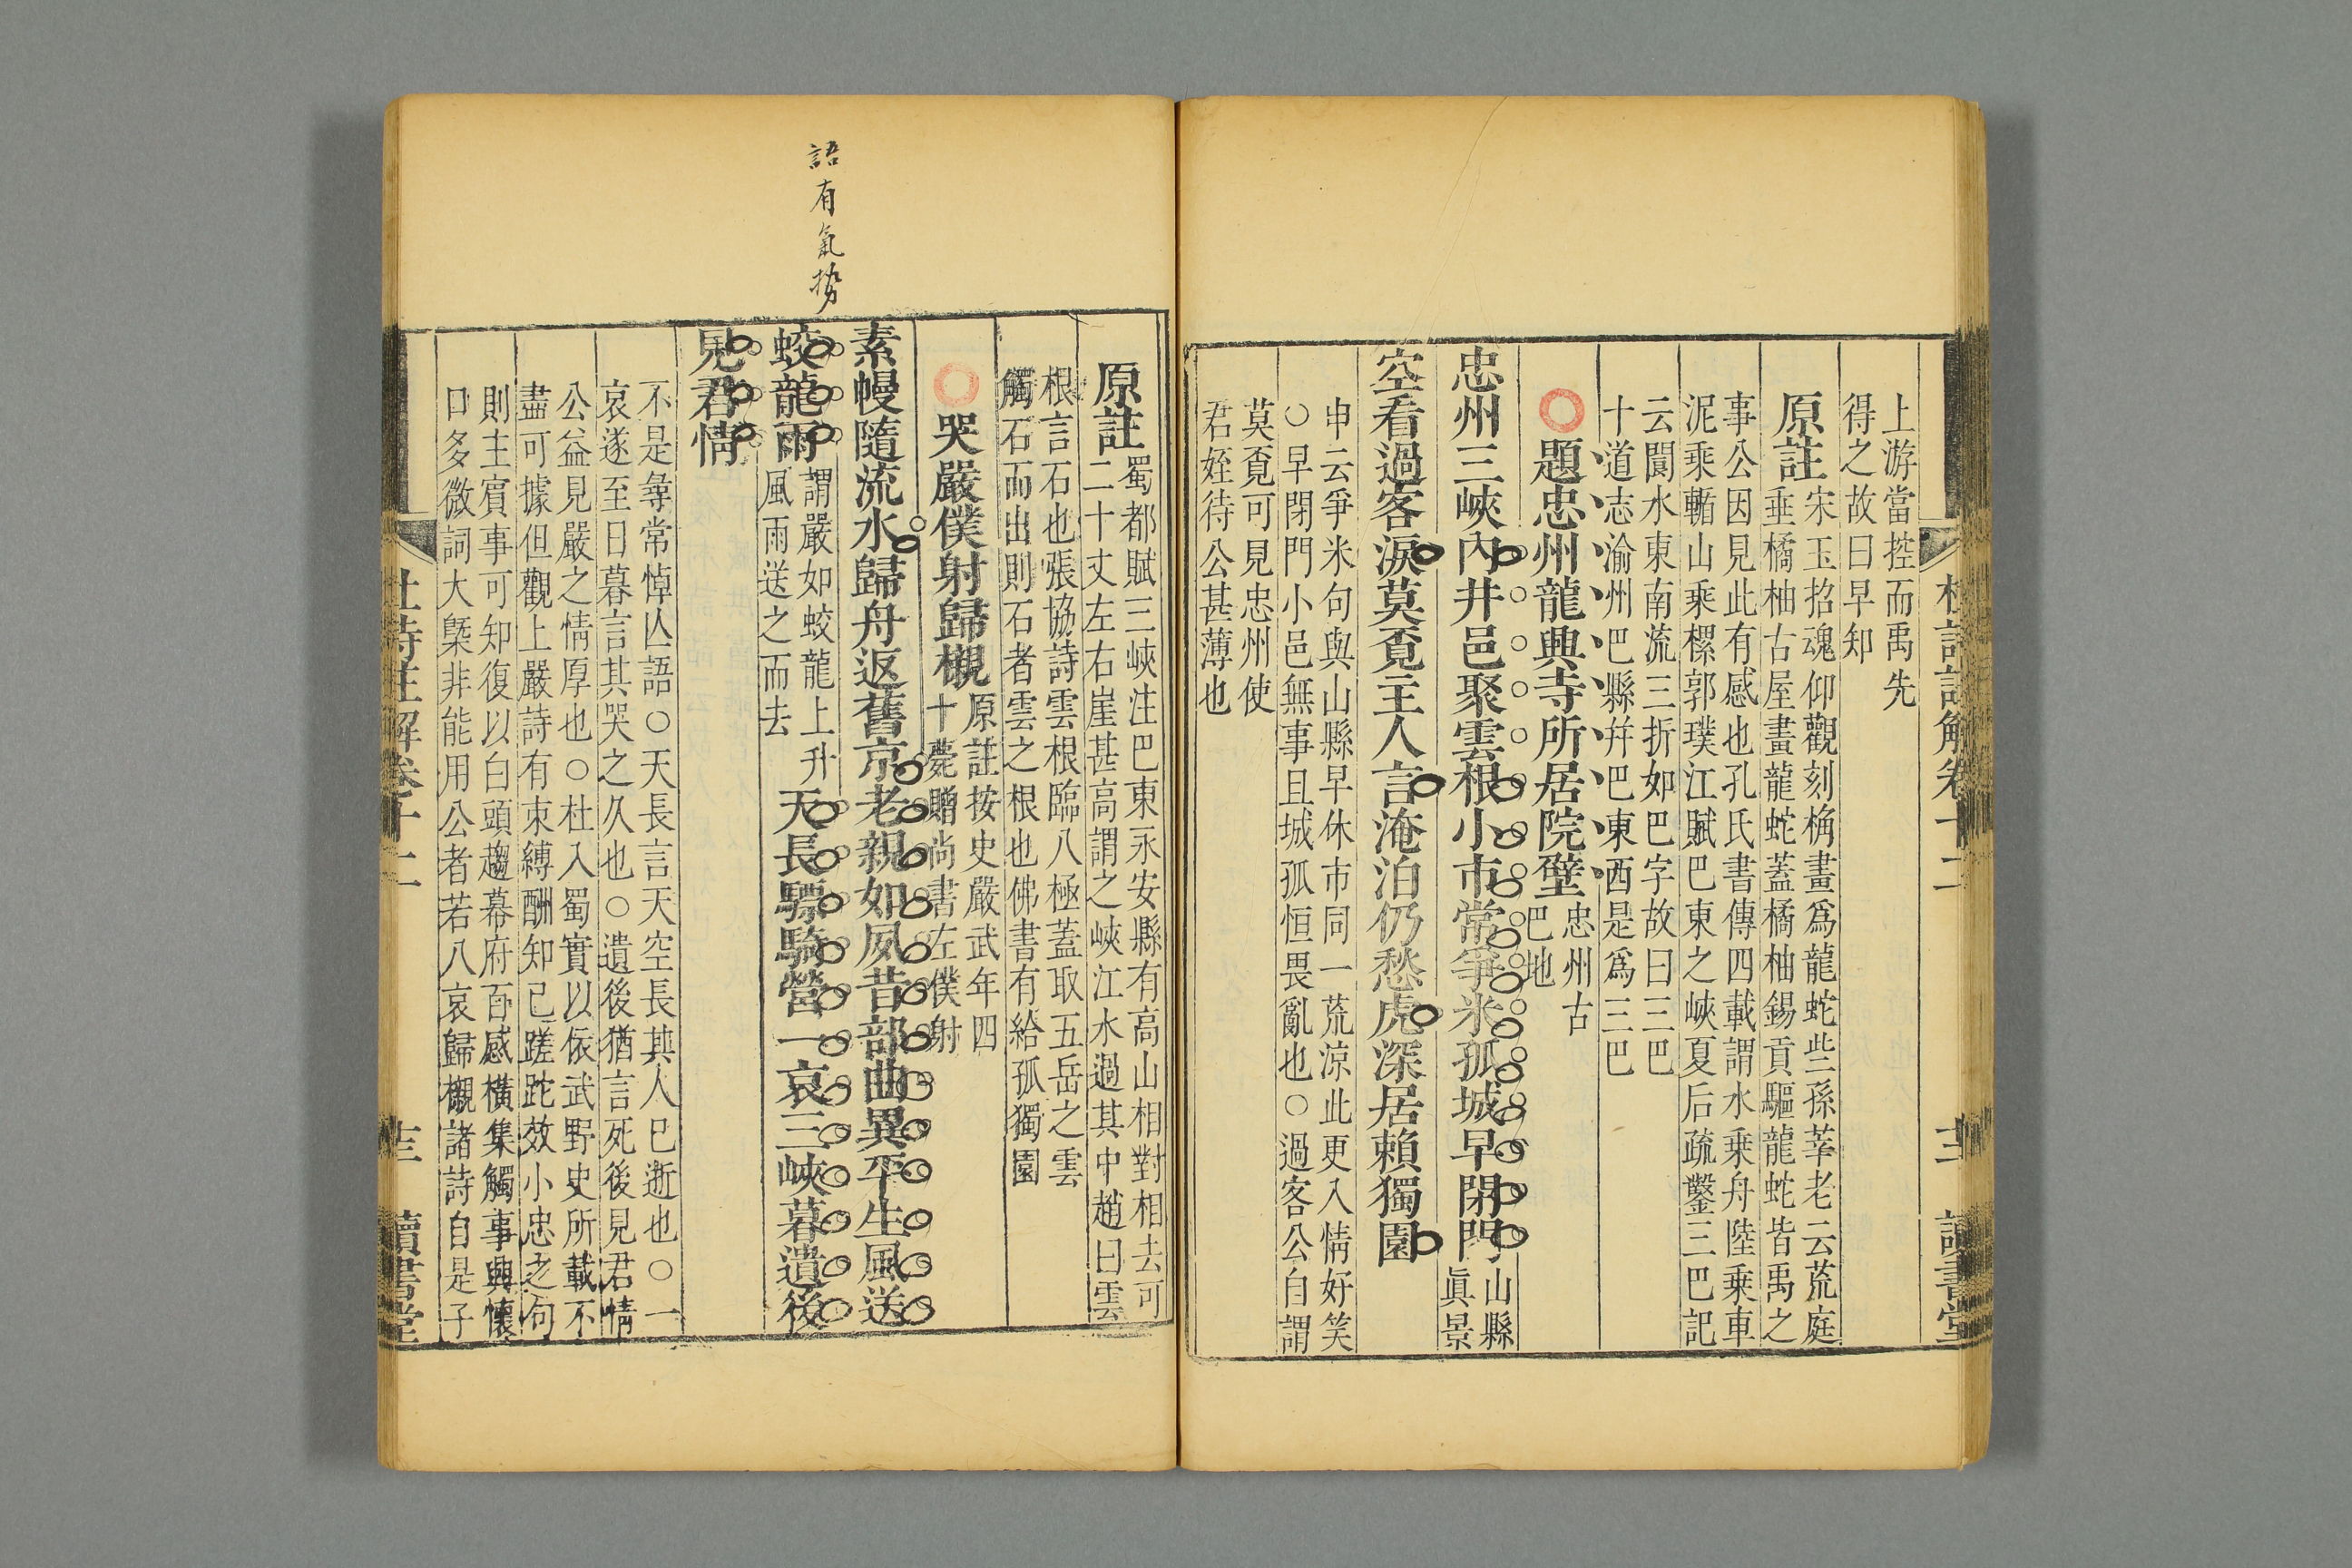 上游當控而禹先
得之故曰早知
原註
宋玉招魂仰觀刻桷畫爲龍蛇些孫莘老云荒庭
垂橘柚古屋畫龍蛇蓋橘柚錫貢驅龍蛇皆禹之
事公因見此有感也孔氏書傳四載謂水乘舟陸乘車
泥乘輴山乘樏郭璞江賦巴東之峽夏后疏鑿三巴記
云閬水東南流三折如巴字故曰三巴
十道志渝州巴縣幷巴東西是爲三巴
題忠州龍興寺所居院壁
忠州古
巴地
忠州三峽內井邑聚雲根小市常爭米孤城早閉門
山縣
眞景
空看過客淚莫覓主人言淹泊仍愁虎深居賴獨園
申云爭米句與山縣早休市同一荒涼此更入情好笑
○早閉門小邑無事且城孤恒畏亂也○過客公自謂
莫覓可見忠州使
君姪待公甚薄也
杜詩註解卷十二
十二
讀書堂
原註
蜀都賦三峽注巴東永安縣有高山相對相去可
二十丈左右崖甚高謂之峽江水過其中趙曰雲
根言石也張協詩雲根臨八極蓋取五岳之雲
觸石而出則石者雲之根也佛書有給孤獨園
哭嚴僕射歸櫬
原註按史嚴武年四
十薨贈尚書左僕射
素幔隨流水歸舟返舊京老親如夙昔部曲異平生風送
蛟龍雨
謂嚴如蛟龍上升
風雨送之而去
天長驃騎營一哀三峽暮遺後
見君情
不是尋常悼亾語○天長言天空長其人已逝也○一
哀遂至日暮言其哭之久也○遺後猶言死後見君情
公益見嚴之情厚也○杜入蜀實以依武野史所載不
盡可據但觀上嚴詩有束縛酬知已蹉跎效小忠之句
則主賓事可知復以白頭趨幕府百感橫集觸事興懷
口多微詞大槩非能用公者若八哀歸櫬諸詩自是子
杜詩註解卷十二
十三
讀書堂
語有氣勢